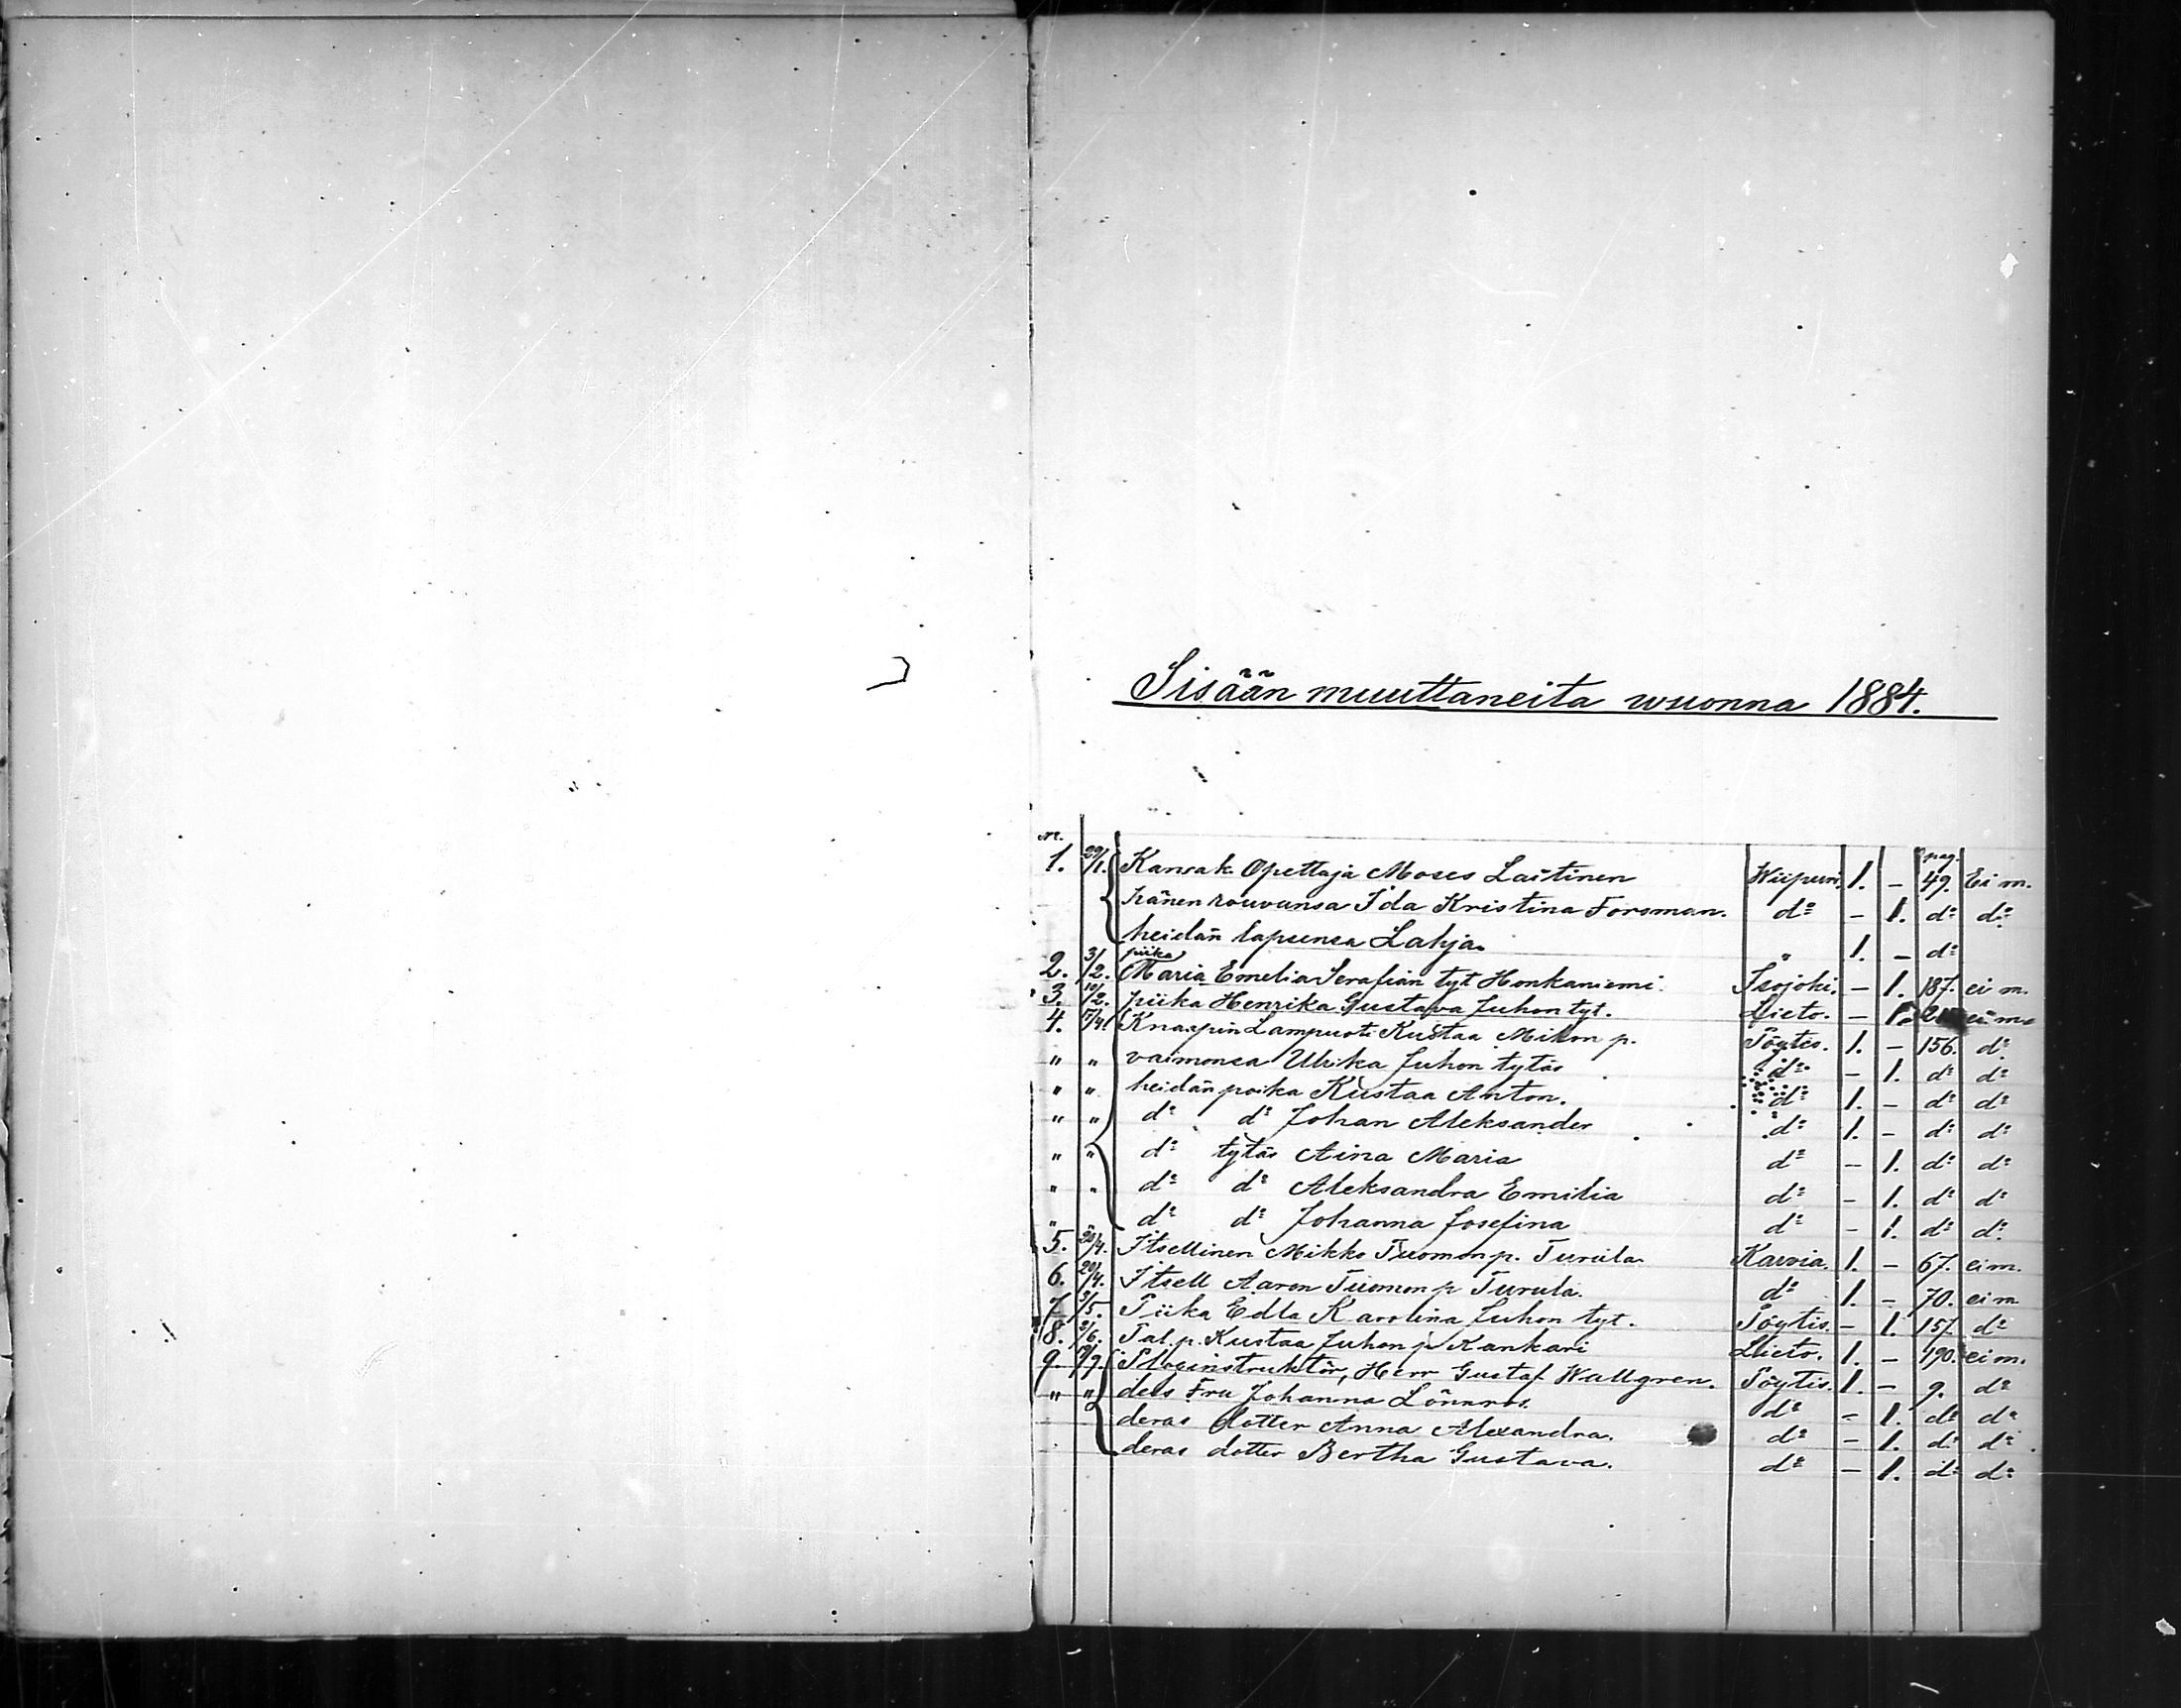 Sisään muuttaneita wuonna 1884.
n. pag.
1. 29/1. Kansak. Opettaja Moses Laitinen Wiipuri. 1. - 49. Ei m.
hänen rouvansa Ida Kristina Forsman. d:o - 1. d:o d:o
heidän lapsensa Lahja. " 1. - d:o
piika
2. 3/2. Maria Emelia Serafian tyt Honkaniemi. Isojoki. - 1. 187. ei m.
3. 10/2. piika Henrika Gustava Juhon tyt. Lieto. - 1. ei m.
4. 17/4. Knaapin Lampuoti Kustaa Mikon p. Töytis. 1. - 156. d:o
" " vaimonsa Ulrika Juhon tytär d:o - 1. d:o d:o
" " heidän poika Kustaa Anton. d:o 1. - d:o d:o
" " d:o d:o Johan Aleksander d:o 1. - d:o d:o
" " d:o tytär Aina Maria d:o - 1. d:o d:o
" " d:o d:o Aleksandra Emilia d:o - 1. d:o d:o
" d:o d:o Johanna Josefina d:o - 1. d:o d:o
5. 20/4. Itsellinen Mikko Tuomon p. Turula Karvia. 1. - 67. ei m.
6. 20/4. Itsell Aaron Tuomon p Turula. d:o 1. - 70. ei m
7. 3/5. Piika Edla Karolina Juhon tyt. Pöytis. - 1. 157. d:o
8. 2/6. Tal. p. Kustaa Juhon p Kankari Lieto. 1. - 190. ei m.
9. /9. Ploginstruktör, Herr Gustaf Wallgren. Pöytis. 1. - 9. d:o
" " dess Fru Johanna Lönnros. d:o - 1. d:o d:o
deras dotter Anna Alexandra. d:o - 1. d:o d:o
deras dotter Bertha Gustava. d:o - 1. d:o d:o